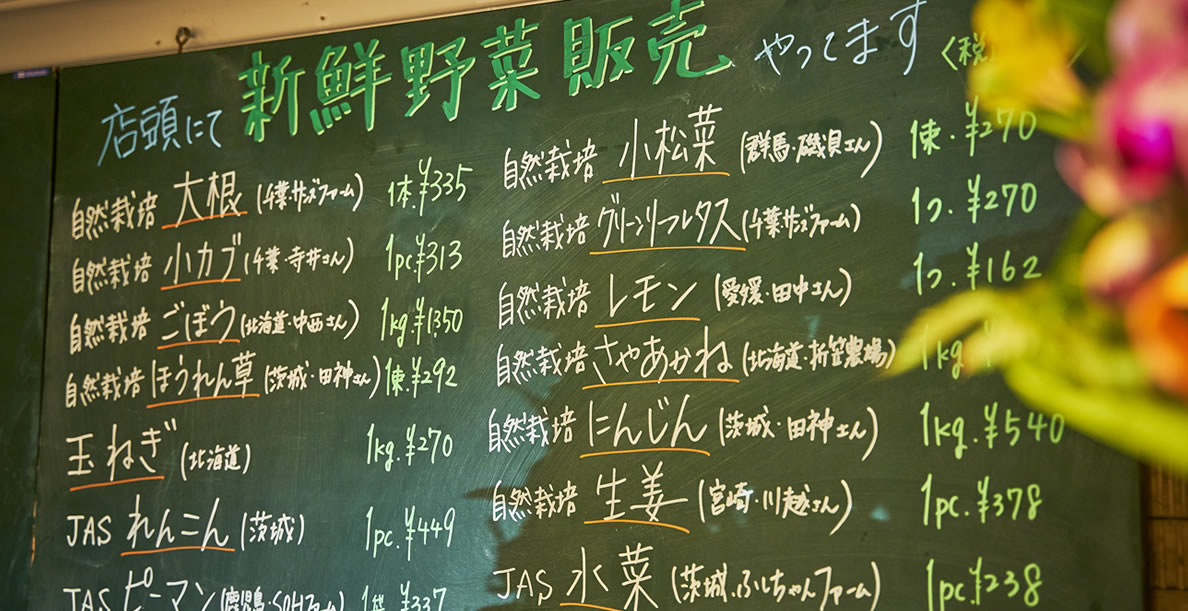 店頭にて 新鮮野菜販売 やってます
自然栽培 大根 (千葉・サンズファーム) 1本.¥335
自然栽培 小カブ (千葉・寺井さん) 1pc.¥313
自然栽培 ごぼう (北海道・中西さん) 1kg.¥1350
自然栽培 ほうれん草 (茨城・田神さん) 1束.¥292
玉ねぎ (北海道) 1kg.¥270
JAS れんこん (茨城) 1pc.¥449
JAS ピーマン (鹿児島・ファーム) 1袋 ¥337
〈税
自然栽培 小松菜 (群馬・磯貝さん) 1束.¥270
自然栽培 グリーンリーフレタス (千葉サンズファーム) 1つ.¥270
自然栽培 レモン (愛媛・田中さん) 1つ.¥162
自然栽培 さやあかね (北海道・折笠農場) 1kg
自然栽培 にんじん (茨城・田神さん) 1kg.¥540
自然栽培 生姜 (宮崎・川越さん) 1pc.¥378
JAS 水菜 (茨城.ふしちゃんファーム) 1pc.¥238